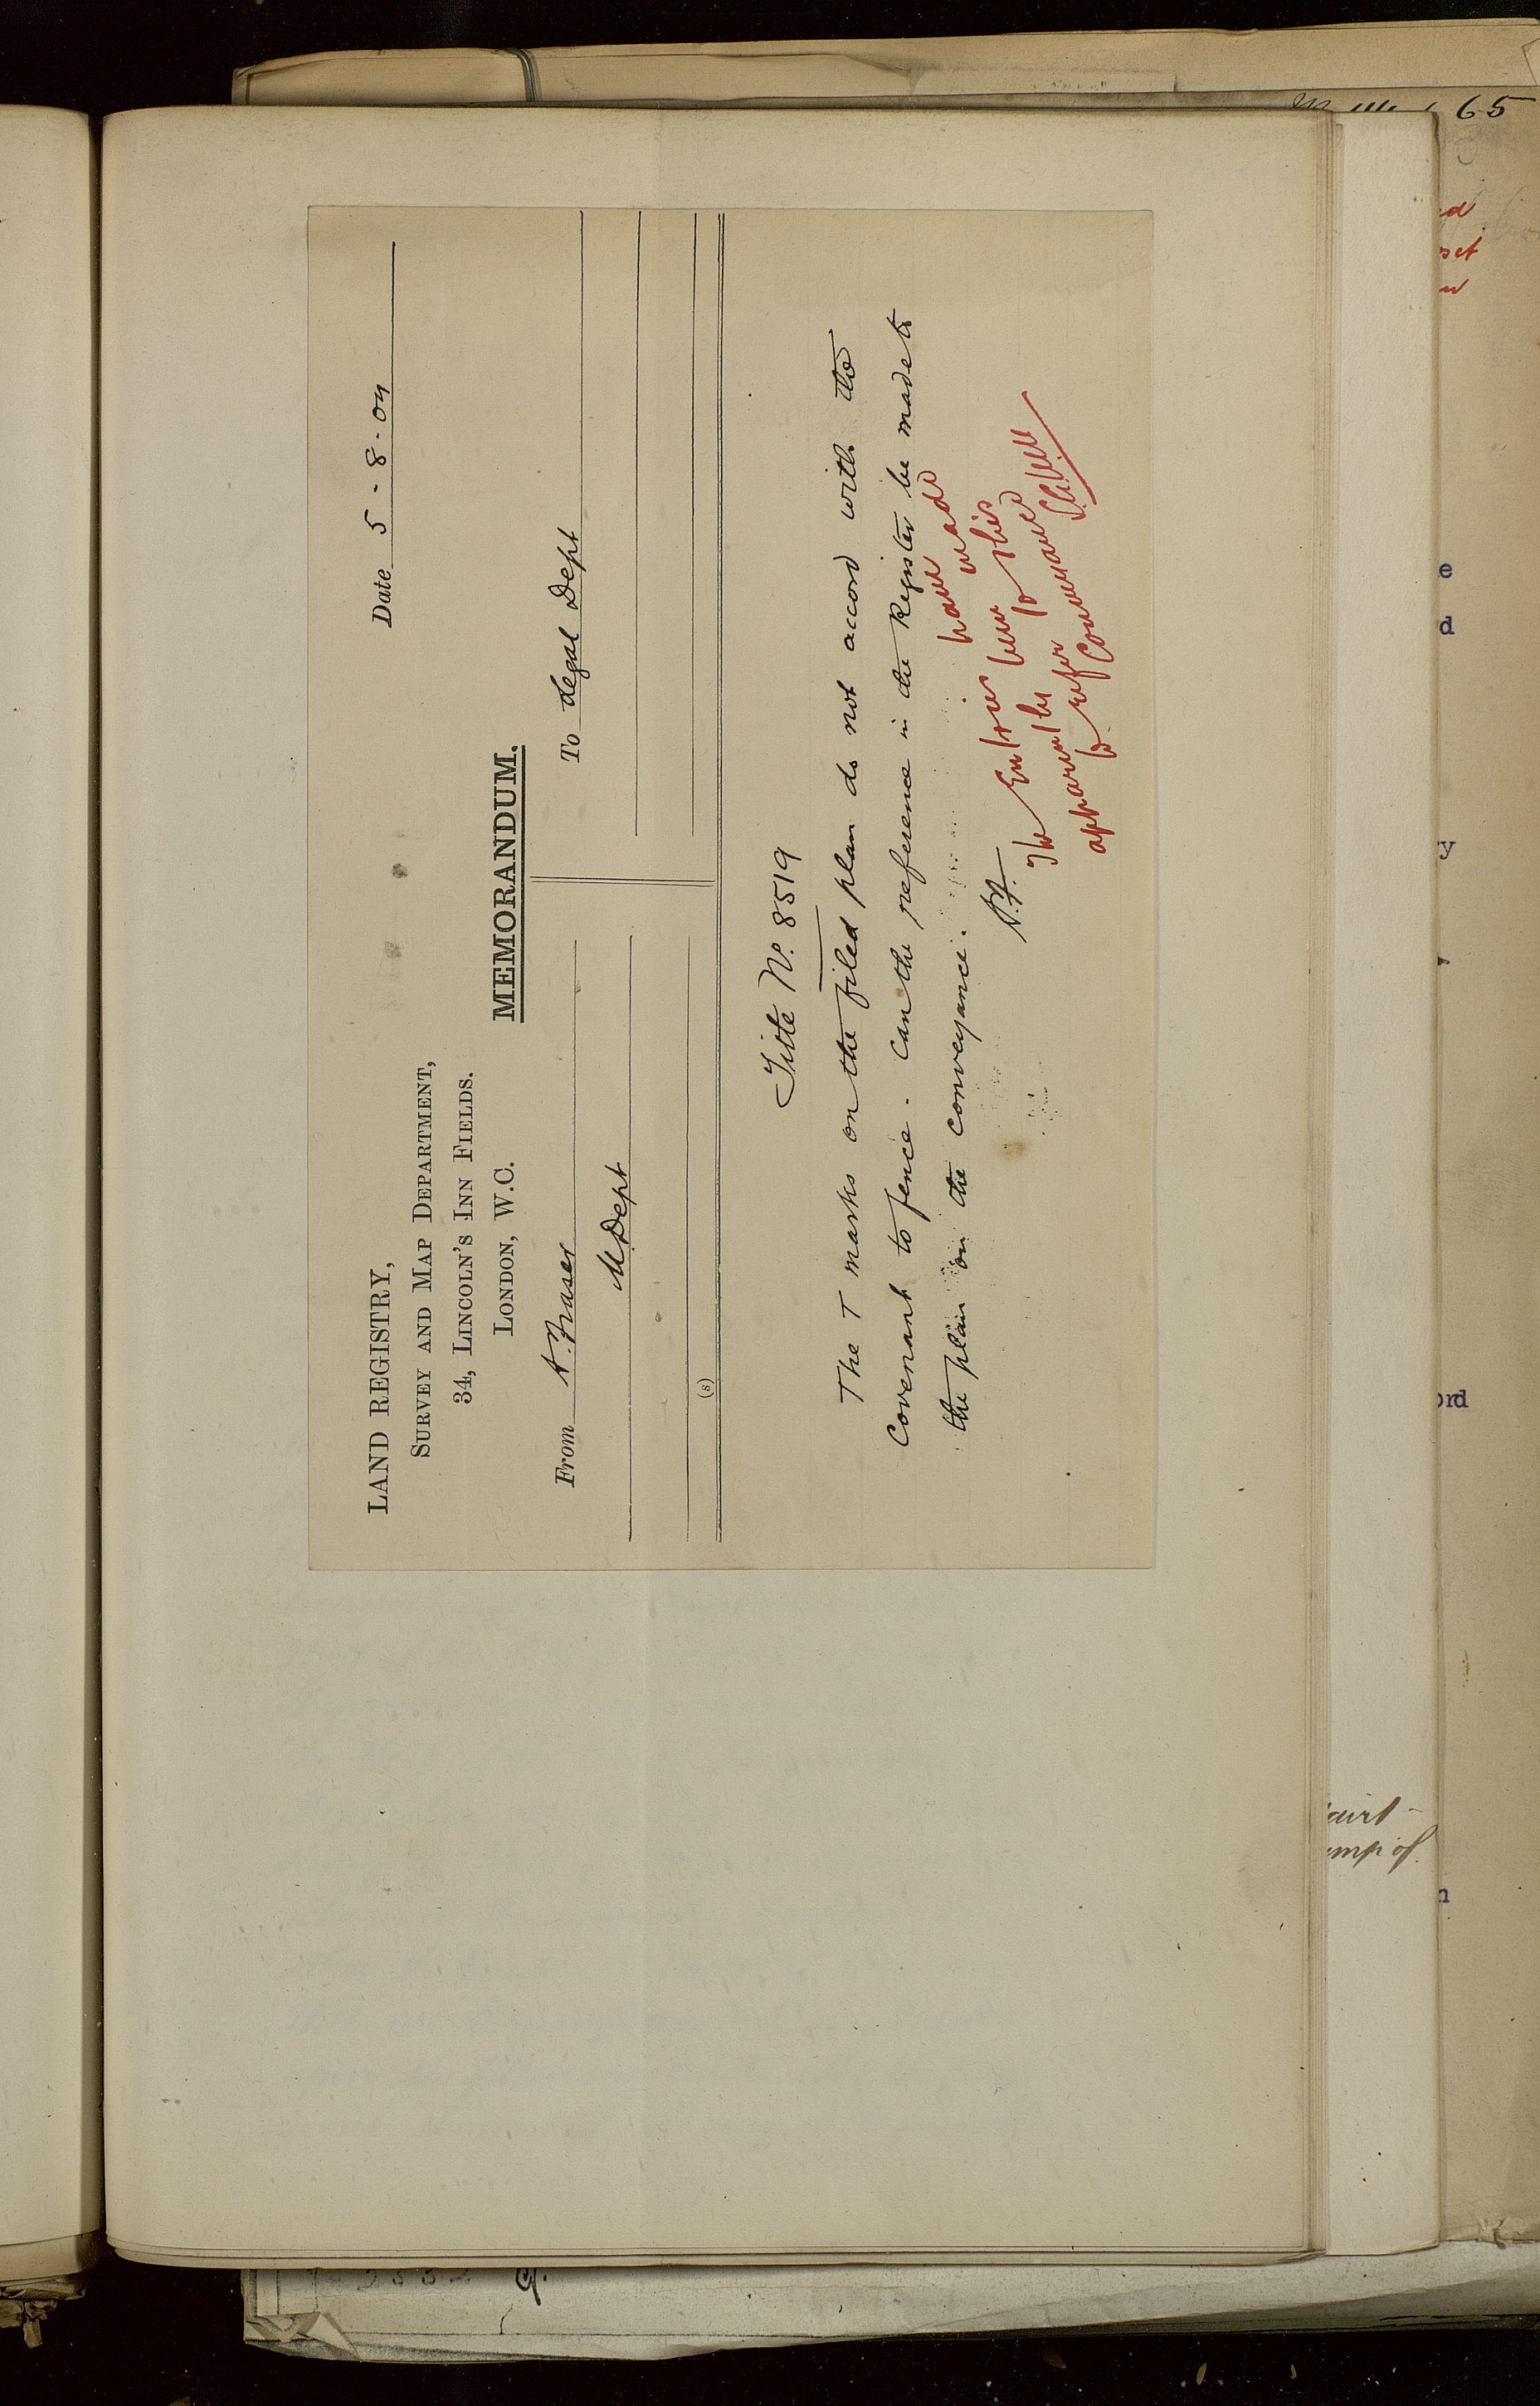 LAND REGISTRY,
SURVEY AND MAP DEPARTMENT,
34, LINCOLN'S INN FIELDS.
LONDON, W.C.
Date 5-8-04
MEMORANDUM.
From A. Fraser
M. Dept
To Legal Dept
(s)
Title No. 8519
The T marks on the filed plan do not accord with the
Covenant to fence. Can the reference in the Register be made to
the plan on the conveyance.
A.F.
The Entries have
apparently been made
to refer to this
Conveyance
65
ed
set
e
d
y
ord
n